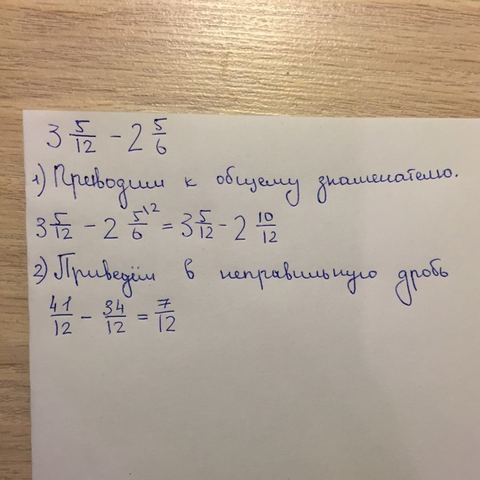 3 5/12 - 2 5/6
1) Преводим к общему знаменателю.
3 5/12 - 2 5/6 \2 = 3 5/12 - 2 10/12
2) Приведём в неправильную дробь
41/12 - 34/12 = 7/12